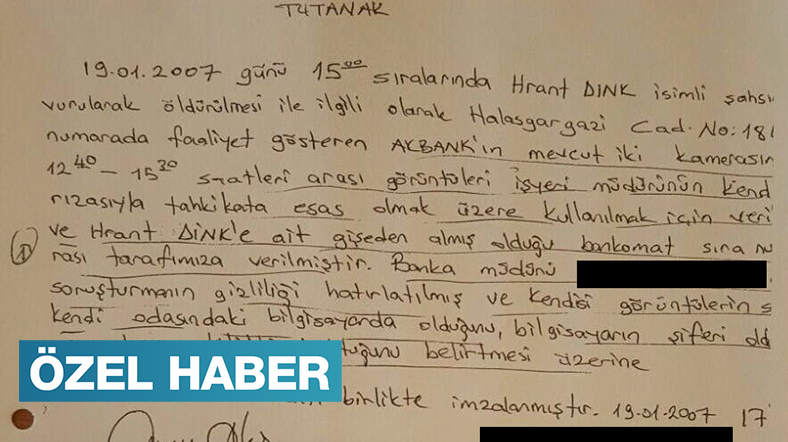 TUTANAK
19.01.2007 günü 15⁰⁰ sıralarında Hrant DİNK isimli şahsı
vurularak öldürülmesi ile ilgili olarak Halasgargazi Cad. No: 181
numarada faaliyet gösteren AKBANK'ın mevcut iki kamerasın
12⁴⁰ - 15³⁰ saatleri arası görüntüleri işyeri müdürünün kend
rızasıyla tahkikata esas olmak üzere kullanılmak için veri
ve Hrant DİNK'e ait gişeden almış olduğu bankomat sıra nu
1
rası tarafımıza verilmiştir. Banka müdürü
soruşturmanın gizliliği hatırlatılmış ve kendisi görüntülerin s
kendi odasındaki bilgisayarda olduğunu, bilgisayarın şifreli old
belirtmesi üzerine
birlikte imzalanmıştır. 19.01.2007 17
ÖZEL HABER